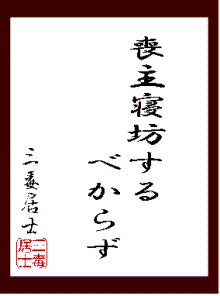 喪主寝坊する
べからず
三毒居士
三毒
居士